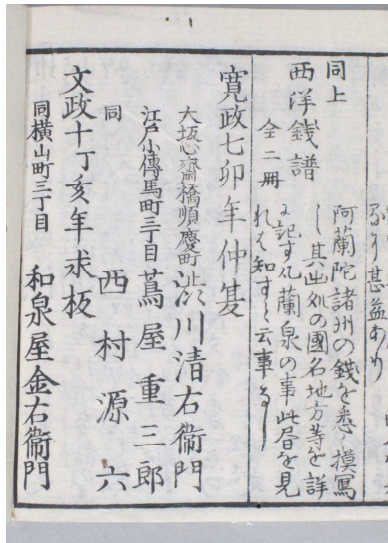 甚益あり
同上
西洋銭譜 全二冊
阿蘭陀諸州の銭を悉く摸冩
し其出処の國名地方等を詳
に記す凡蘭泉の事此書を見
れは知すと云事なし
寛政七卯年仲夏
大坂心齋橋順慶町 渋川清右衛門
江戸小傳馬町三丁目 蔦屋重三郎
同 西村源六
文政十丁亥年求板
同横山町三丁目 和泉屋金右衛門